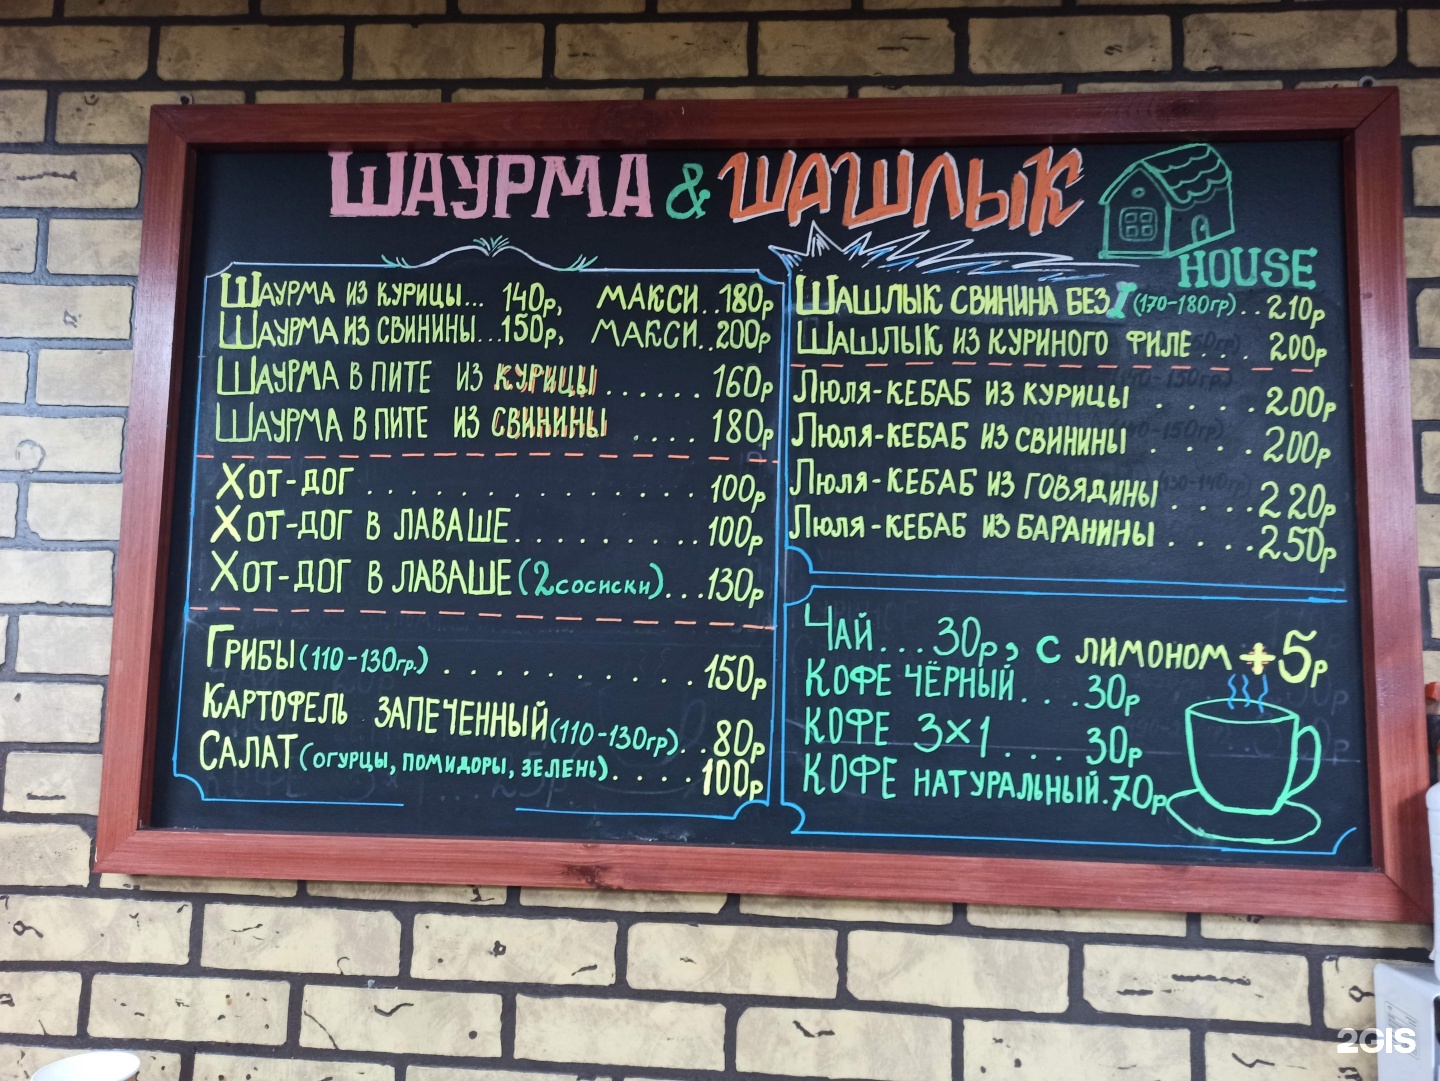 ШАУРМА & ШАШЛЫК
HOUSE
ШАУРМА ИЗ КУРИЦЫ... 140р, МАКСИ..180р
ШАУРМА ИЗ СВИНИНЫ...150р, МАКСИ..200р
ШАУРМА В ПИТЕ ИЗ КУРИЦЫ......160р
ШАУРМА В ПИТЕ ИЗ СВИНИНЫ ....180р
ХОТ-ДОГ...............100р
ХОТ-ДОГ В ЛАВАШЕ.........100р
ХОТ-ДОГ В ЛАВАШЕ(2сосиски)...130р
ГРИБЫ(110-130гр.)..........150р
КАРТОФЕЛЬ ЗАПЕЧЕННЫЙ(110-130гр)..80р
САЛАТ(ОГУРЦЫ, ПОМИДОРЫ, ЗЕЛЕНЬ).....100р
ШАШЛЫК СВИНИНА БЕЗ (170-180гр)..210р
ШАШЛЫК ИЗ КУРИНОГО ФИЛЕ... 200р
ЛЮЛЯ-КЕБАБ ИЗ КУРИЦЫ ....200р
ЛЮЛЯ-КЕБАБ ИЗ СВИНИНЫ ....200р
ЛЮЛЯ-КЕБАБ ИЗ ГОВЯДИНЫ ....220р
ЛЮЛЯ-КЕБАБ ИЗ БАРАНИНЫ ....250р
ЧАЙ...30р, С ЛИМОНОМ +5р
КОФЕ ЧЁРНЫЙ...30р
КОФЕ 3×1.... 30р
КОФЕ НАТУРАЛЬНЫЙ.70р
2GIS